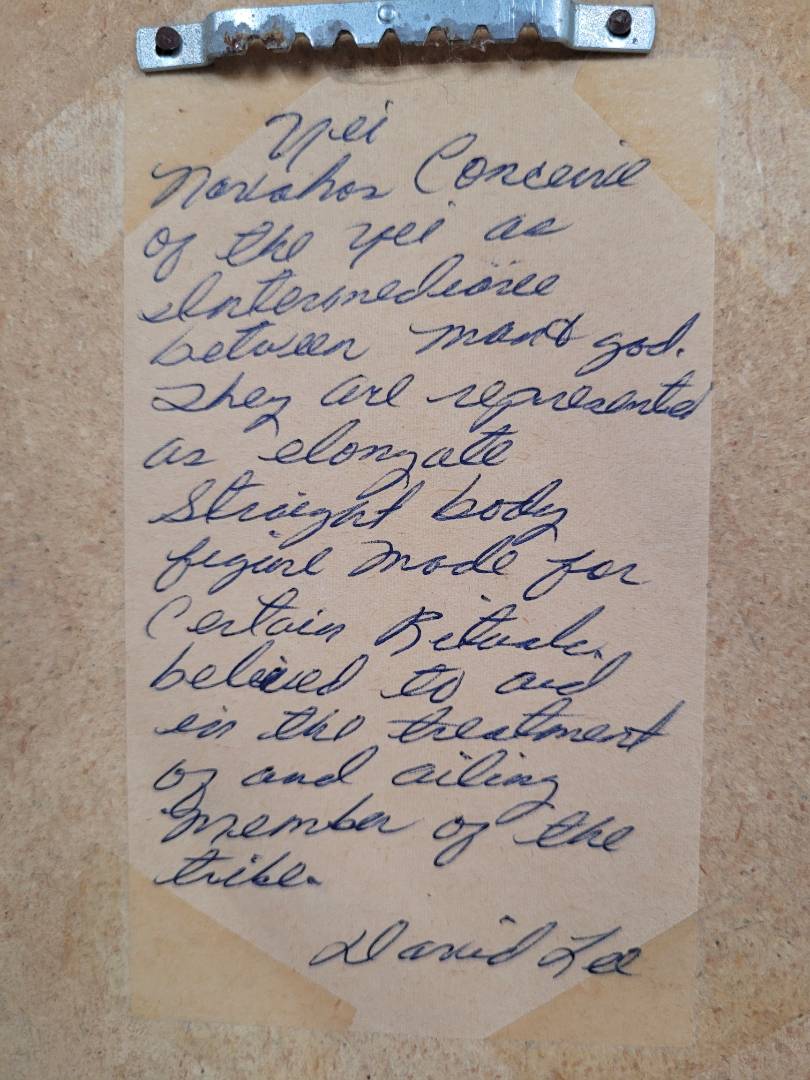 Yei
Navahos Conceive
of the yei as
Intermediaree
between man & god.
They are represented
as elongate
Straight body
figure made for
Certain Rituals.
believed to aid
in the treatment
of and ailing
member of the
tribe.
David Lee